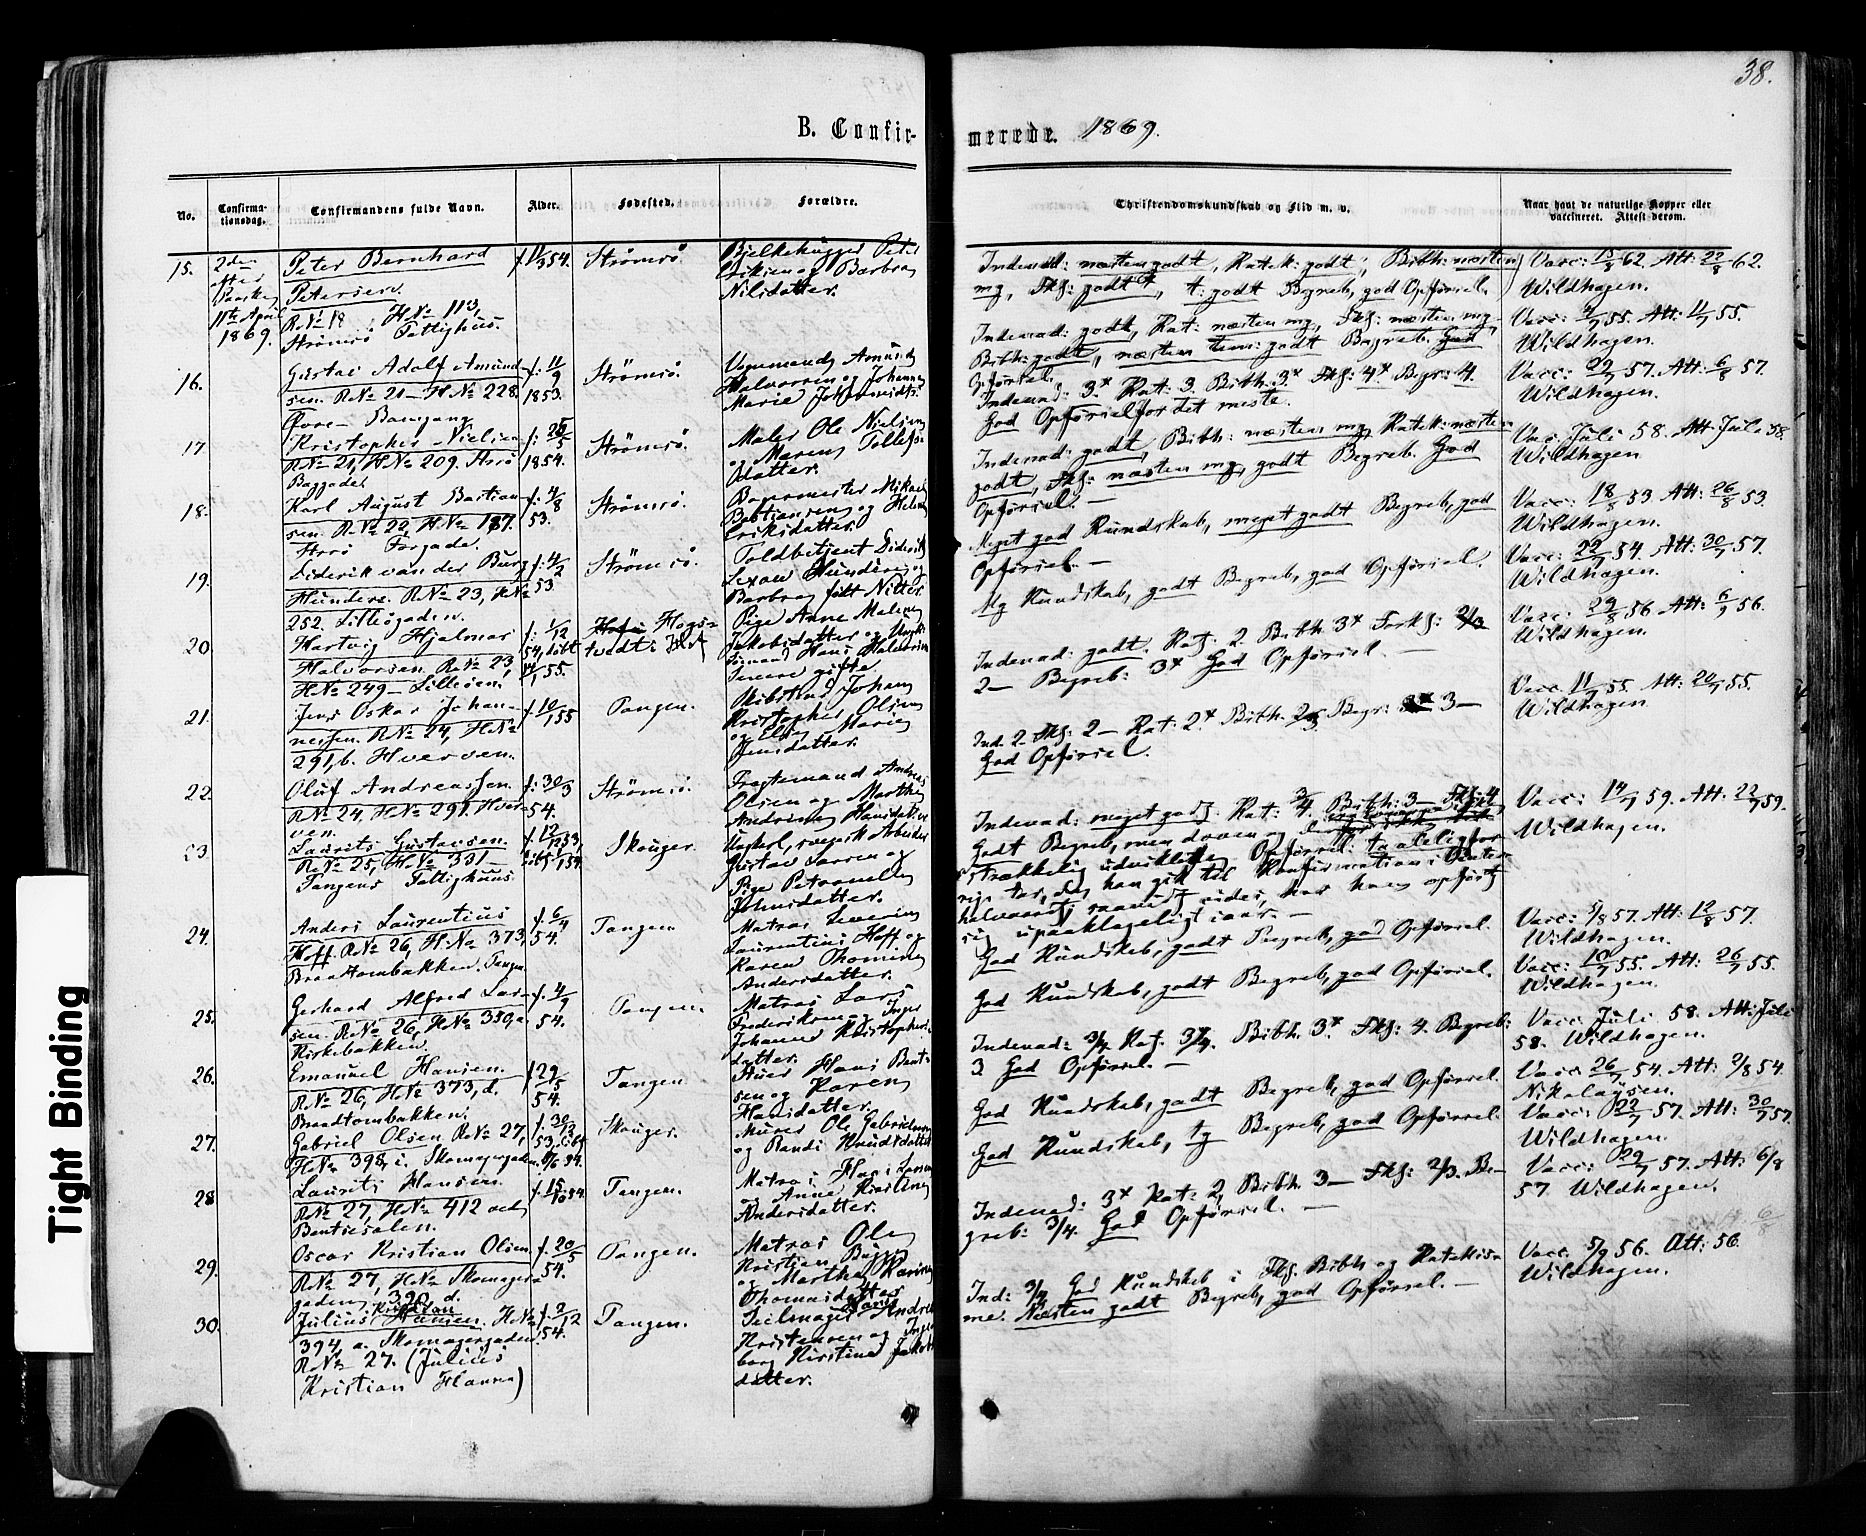 38.
B. Confir-
merede. 1869.
No.
Confirma-
tionsdag.
Confirmandens fulde Navn.
Alder.
Fødested.
Forældre.
Christendomskundskab og Flid m. v.
Naar havt de naturlige Kopper eller
vaccineret. Attest derom.
15.
2den
efter
Paaske
11te April
1869.
Peter Bernhard
Petersen.
R.No 18 H.No 113,
Strømsø Fattighus.
Strømsø
Bjelkehugger Peter
Eriksen og Barbra
Nilsdatter.
Indenad: næsten godt, Katek: godt, Bibh: næsten
mg, Fkl: godt, t. godt Begreb, god Opførsel.
Vacc: 15/8 62. Att: 22/8 62.
Wildhagen.
16.
Gustav Adolf Amund-
sen. R.No 21 - H.No 228.
Øvre-Bangang
f. 11/9
1853.
Strømsø.
Vognmand Amund
Halvorsen og Johanne
Marie
Indenad: godt, Kat: næsten mg, Fkl: næsten mg
Bibh: godt, næsten godt Begreb. God
Opførsel.
Vacc: 55. Att: 11/7 55.
Wildhagen.
17
Kristopher Nielsen
R.No 21, H.No 209. Strø
Baggade
f: 26/5
1854.
Strømsø.
Maler Ole Nielsen
og Maren Tollefs-
datter.
Indenad: 3x Kat: 3. Bibh: 3x Fkl: 4x Begr: 4.
God Opførsel for det meste.
Vacc: 22/7 57. Att: 6/8 57.
Wildhagen.
18.
Karl August Bastian-
sen. R.No 22, H.No 187.
Strø Torgade.
f. 4/8
53.
Strømsø.
Bogermester Mikael
Bastiansen og Helene
Eriksdatter.
Indenad: godt, Bibh: næsten mg, Katek: næsten
godt, Fkl: næsten mg, godt Begreb. God
Opførsel.
Vac. Juli 58. Att Juli 58.
Wildhagen
19.
Diderik van der Burg
Hundere. R.No 23, H.No
252. Lilleøgaden.
f. 4/2
53
Strømsø.
Toldbetjent Diderik
Lexow Hundere og
Barbra født Nitter.
Meget god Kundskab, meget godt Begreb, god
Opførsel.
Vacc: 18/8 53 Att: 26/8 53.
Wildhagen.
20
Hartvig Hjalmar
Halvorsen R.No 23,
H.No 249 - Lilleøen.
f: 1/12
54, døbt
55.
Pige Anne Malene
Jakobsdatter og Ungk.
Sømand Hans Halvorsen
Senere gifte
Mg Kundskab, godt Begreb, god Opførsel.
Vacc: 22/7 54. Att: 30/7 57.
Wildhagen.
21.
Jens Oskar Johan-
nessen. R.No 24, H.No
291, b. Hverven.
f. 10/1 55
Tangen.
Skibstmd Johan
Kristopher Olsen
og Elen Marie
Jensdatter.
Indenad: godt, Kat: 2. Bibh 3x Forkl: 2/3
2 - Begreb: 3x God Opførsel.
Vacc: 29/8 56 Att: 6/9 56.
Wildhagen.
22.
Oluf Andreassen.
R.No 24, H.No 291. Hver
ven.
f: 30/3
54.
Strømsø.
Fragtemand Andreas
Olsen og Marthe
Andrine Hansdatter
Ind. 2. Fkl: 2 - Kat: 2x Bibh. 2/3 Begr: 3 -
God Opførsel.
Vacc 11/7 55. Att: 20/7 55.
Wildhagen
23.
Laurits Gustavsen.
R.No 25, H.No 331 -
Tangens Fattighuus.
f. 12/12 53,
Skouger
Ungkarl, svensk Arbeider
Gustav Larsen og
Pige Petronelle
Johnsdatter.
Indenad: meget godt. Kat: 3/4. Bibh: 3 - Fkl: 4
Godt Begreb, men doven og
strækkelig udviklet. Opførsel: taalelig for
da han gik til Konfirmation i Vinter
sig upaaklageligt iaar. -
Vacc: 14/7 59. Att: 22/7 59.
Wildhagen.
24.
Anders Laurentius
Hoff. R.No 26, H.No 373,
Braatornbakken. Tangen.
f. 6/4
54.
Tangen
Matros Severin
Laurentius Hoff og
Karen Thomine
Andersdatter.
God Kundskab, godt Begreb, god Opførsel.
Vacc: 5/8 57. Att: 12/8 57.
Wildhagen.
25.
Gerhard Alfred Lar-
sen. R.No 26, H.No 350, a.
Kirkebakken.
f. 4/9
54.
Tangen.
Matros Lars
Frederiksen og Inger
Johanne Kristophers-
datter.
God Kundskab, godt Begreb, god Opførsel.
Vacc: 10/7 55. Att: 26/7 55.
Wildhagen.
26.
Emanuel Hansen.
R.No 26, H.No 373, d.
Braatornbakken.
f 29/5
54.
Tangen
Stuer Hans Bent-
sen og Karen
Hansdatter.
Indenad: 3/4 Kat. 3/4. Bibh. 3x Fkl: 4. Begreb:
3 God Opførsel. -
Vacc. Juli 58. Att: Juli
58. Wildhagen.
27.
Gabriel Olsen. R.No 27,
H.No 398, i. Skomagergaden
Skouger.
Murer Ole Gabrielsen
og Randi Knudsdatter
God Kundskab, godt Begreb, god Opførsel.
Vacc: 26/7 54. Att: 2/8 54.
Nikolaysen.
28
Laurits Hansen.
R.No 27, H.No 412
Bentsesalen.
f. 15/10 54.
Tangen.
Matros Hans Larsen
og Anne Kirstine
Andersdatter.
God Kundskab, tg Begreb, god Opførsel.
Vacc: 22/7 57. Att: 30/7 57.
Wildhagen.
29.
Oscar Kristian Olsen
R.No 27, H.No Skomager-
gaden, 390, d.
f. 20/5
54.
Tangen.
Matros Ole
Kristian Bugge
og Marthe Karine
Thomasdatter
Indenad: 3x Kat: 2, Bibh. 3 - Fkl: 2/3. Be-
greb: 3/4. God Opførsel. -
Vacc: 29/7 57. Att: 6/8
57 Wildhagen.
30.
Julius Kristian
Hansen. H.No
394, a. Skomagergaden
R.No 27. (Julius
Kristian Hansen)
f. 2/12
54.
Tangen.
Seilmager Hans Andreas
Kristensen og Inge-
borg Kirstine Jakobs
datter.
Ind: 3/4 God Kundskab i Fkl. Bibh og Katekis-
me. Næsten godt Begreb, god Opførsel. -
Vacc. 5/9 56. Att: 56.
Wildhagen.
Tight Binding